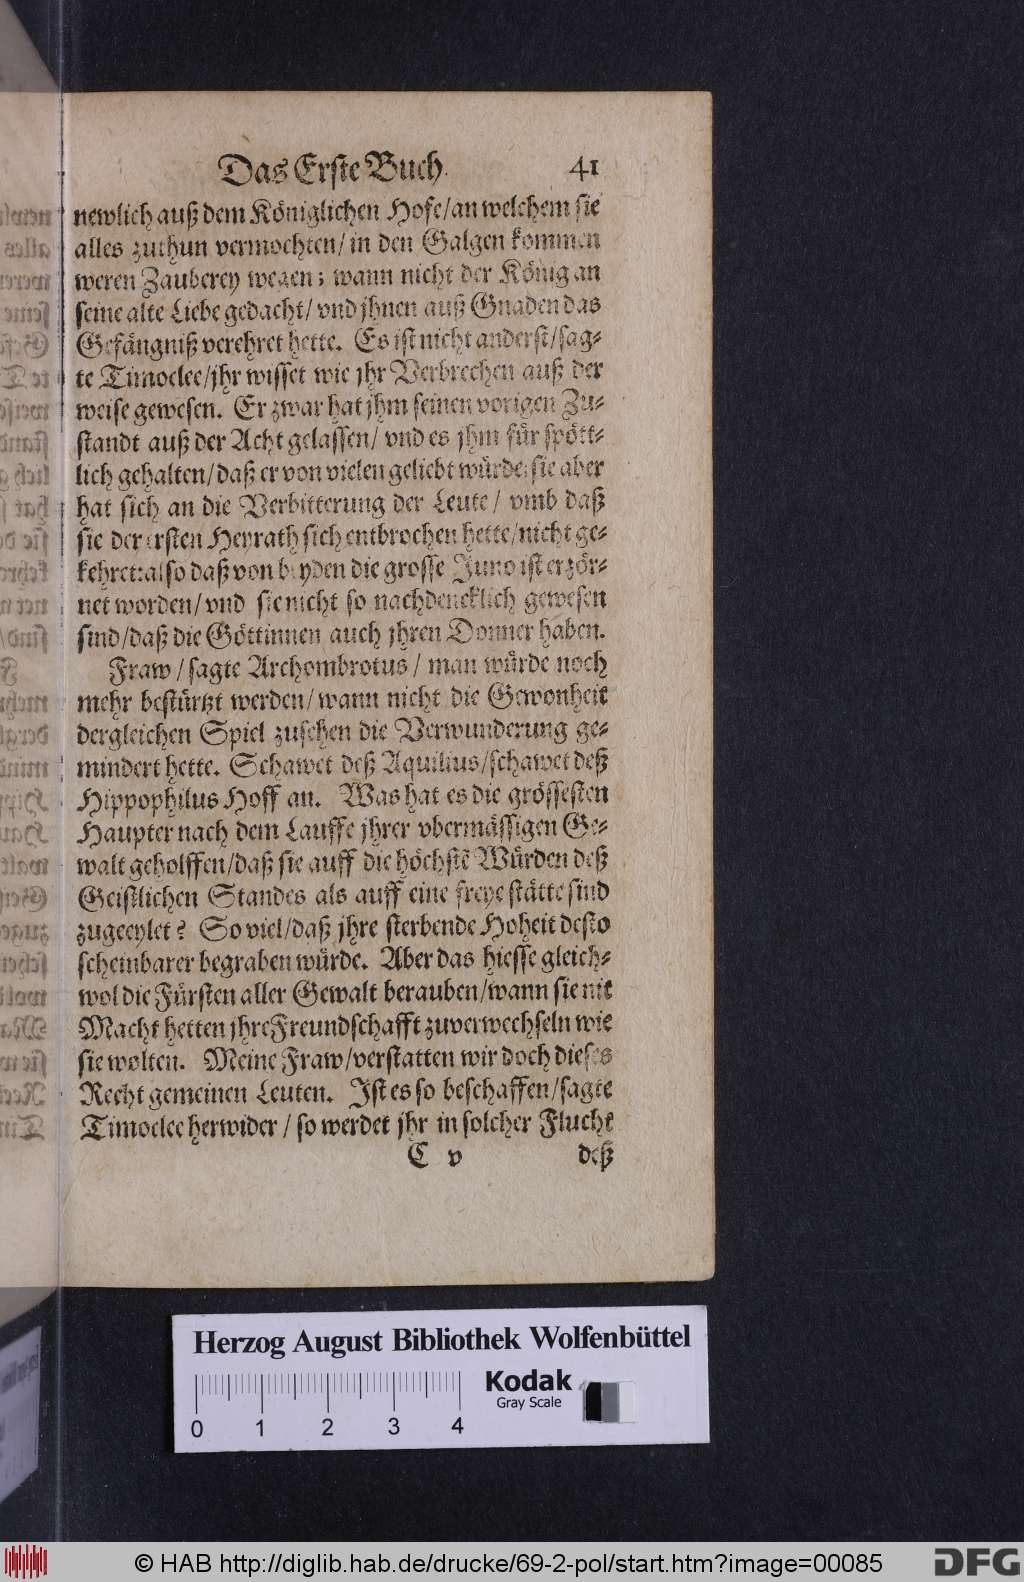 Das Erste Buch. 41
newlich auß dem Königlichen Hofe/an welchem sie
alles zuthun vermochten/ in den Galgen kommen
weren Zauberey wegen; wann nicht der König an
seine alte Liebe gedacht/ vnd jhnen auß Gnaden das
Gefängniß verehret hette. Es ist nicht anderst/sag-
te Timoclee/jhr wisset wie jhr Verbrechen auß der
weise gewesen. Er zwar hat jhm seinen vorigen Zu-
standt auß der Acht gelassen/ vnd es jhm für spött-
lich gehalten/daß er von vielen geliebt würde: sie aber
hat sich an die Verbitterung der Leute/ vmb daß
sie der ersten Heyrath sich entbrochen hette/nicht ge-
kehret: also daß von beyden die grosse Juno ist erzör-
net worden/ vnd sie nicht so nachdencklich gewesen
sind/daß die Göttinnen auch jhren Donner haben.
Fraw/ sagte Archombrotus/ man würde noch
mehr bestürtzt werden/ wann nicht die Gewonheit
dergleichen Spiel zusehen die Verwunderung ge-
mindert hette. Schawet deß Aquilius/schawet deß
Hippophilus Hoff an. Was hat es die grössesten
Haupter nach dem Lauffe jhrer vbermässigen Ge-
walt geholffen/daß sie auff die höchstē Würden deß
Geistlichen Standes als auff eine freye stätte sind
zugeeylet? So viel/daß jhre sterbende Hoheit desto
scheinbarer begraben würde. Aber das hiesse gleich-
wol die Fürsten aller Gewalt berauben/wann sie nit
Macht hetten jhre Freundschafft zuverwechseln wie
sie wolten. Meine Fraw/verstatten wir doch dieses
Recht gemeinen Leuten. Ist es so beschaffen/sagte
Timoclee herwider/ so werdet jhr in solcher Flucht
C v deß
Herzog August Bibliothek Wolfenbüttel
Kodak
Gray Scale
0 1 2 3 4
© HAB http://diglib.hab.de/drucke/69-2-pol/start.htm?image=00085 DFG